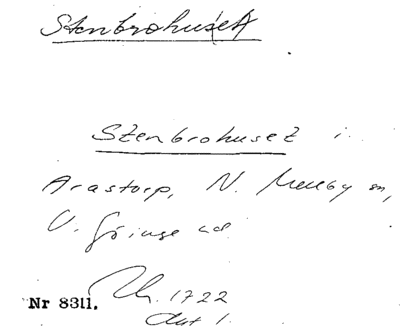 Stenbrohuset
Stenbrohuset i
Arastorp, N. Melby sn,
V. Göinge hd
Nr 8311. 1722